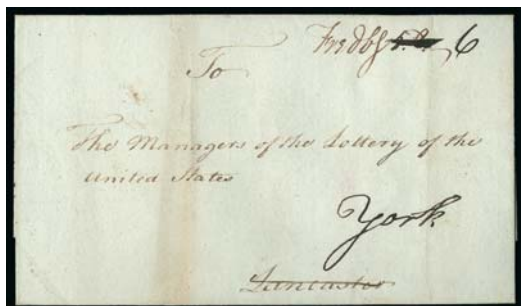 Fredbg 6
To
The Managers of the Lottery of the
United States
York
Lancaster